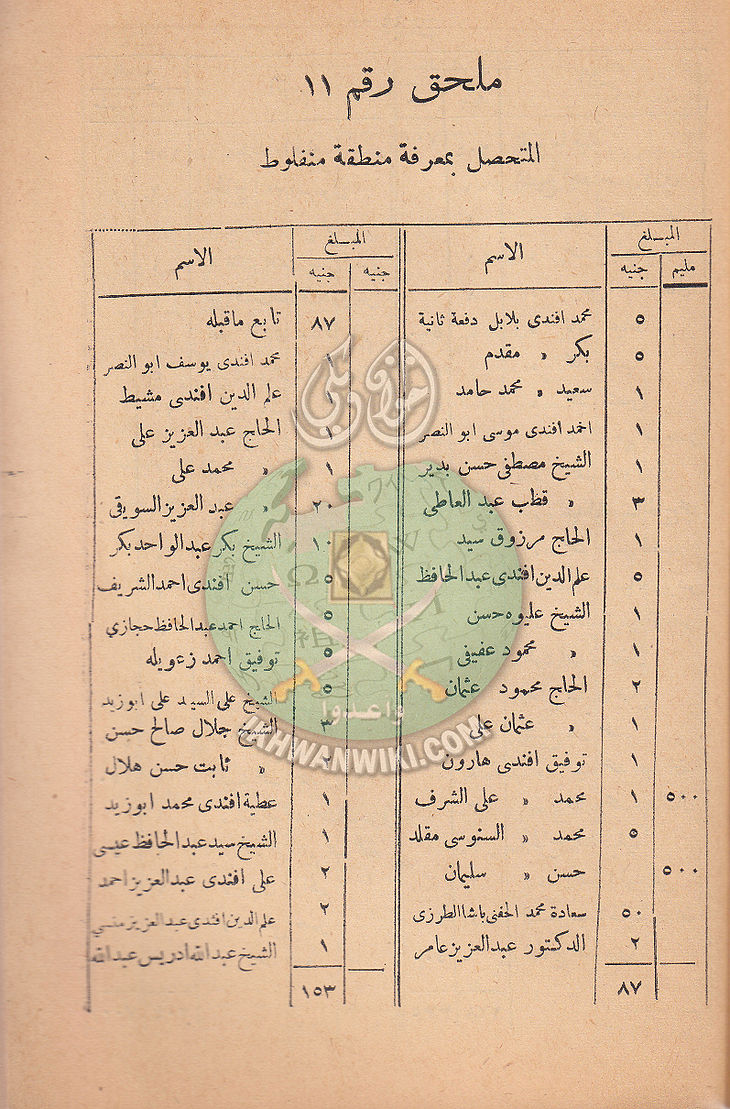 ملحق رقم ١١
المتحصل بمعرفة منطقة منفلوط
المبلغ
مليم جنيه الاسم
٥ محمد افندى بلابل دفعة ثانية
٥ بكر » مقدم
١ سعيد » محمد حامد
١ احمد افندى موسى ابو النصر
١ الشيخ مصطفى حسن بدير
٣ » قطب عبد العاطى
١ الحاج مرزوق سيد
٥ علم الدين افندى عبد الحافظ
١ الشيخ عليوه حسن
١ » محمود عفيفى
٢ الحاج محمود عثمان
١ » عثمان على
١ توفيق افندى هارون
٥٠٠ ١ محمد » على الشرف
٥ محمد » السنوسى مقلد
٥٠٠ حسن » سليمان
٥٠ سعادة محمد الحفنى باشا الطرزى
٢ الدكتور عبد العزيز عامر
٨٧
المبلغ
جنيه جنيه الاسم
٨٧ تابع ماقبله
١ محمد افندى يوسف ابو النصر
١ علم الدين افندى مشيط
١ الحاج عبد العزيز على
١ » محمد على
٢٠ » عبد العزيز السويقى
١٠ الشيخ بكر عبد الواحد بكر
٥ حسن افندى احمد الشريف
٥ الحاج احمد عبد الحافظ حجازي
٥ توفيق احمد زعويله
٥ الشيخ على السيد على ابو زيد
٣ الشيخ جلال صالح حسن
٢ » ثابت حسن هلال
١ عطية افندى محمد ابو زيد
١ الشيخ سيد عبد الحافظ عيسى
٢ على افندى عبد العزيز احمد
٢ علم الدين افندى عبد العزيز منسي
١ الشيخ عبد الله ادريس عبد الله
١٥٣
إخوان ويكي
واعدوا
IKHWANWIKI.COM